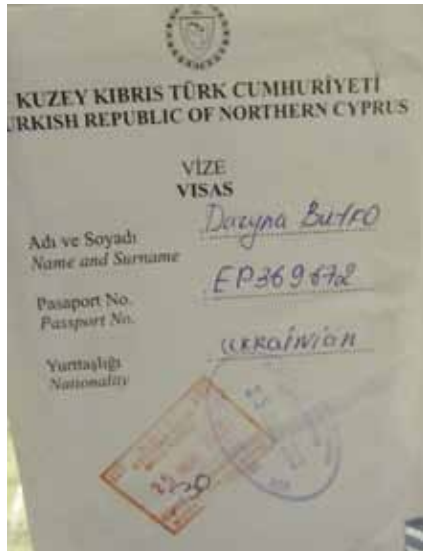 KUZEY KIBRIS TÜRK CUMHURİYETİ
URKISH REPUBLIC OF NORTHERN CYPRUS
VİZE
VISAS
Adı ve Soyadı
Name and Surname
Daryna
Pasaport No.
Passport No.
Yurttaşlığı
Nationality
ukrainian